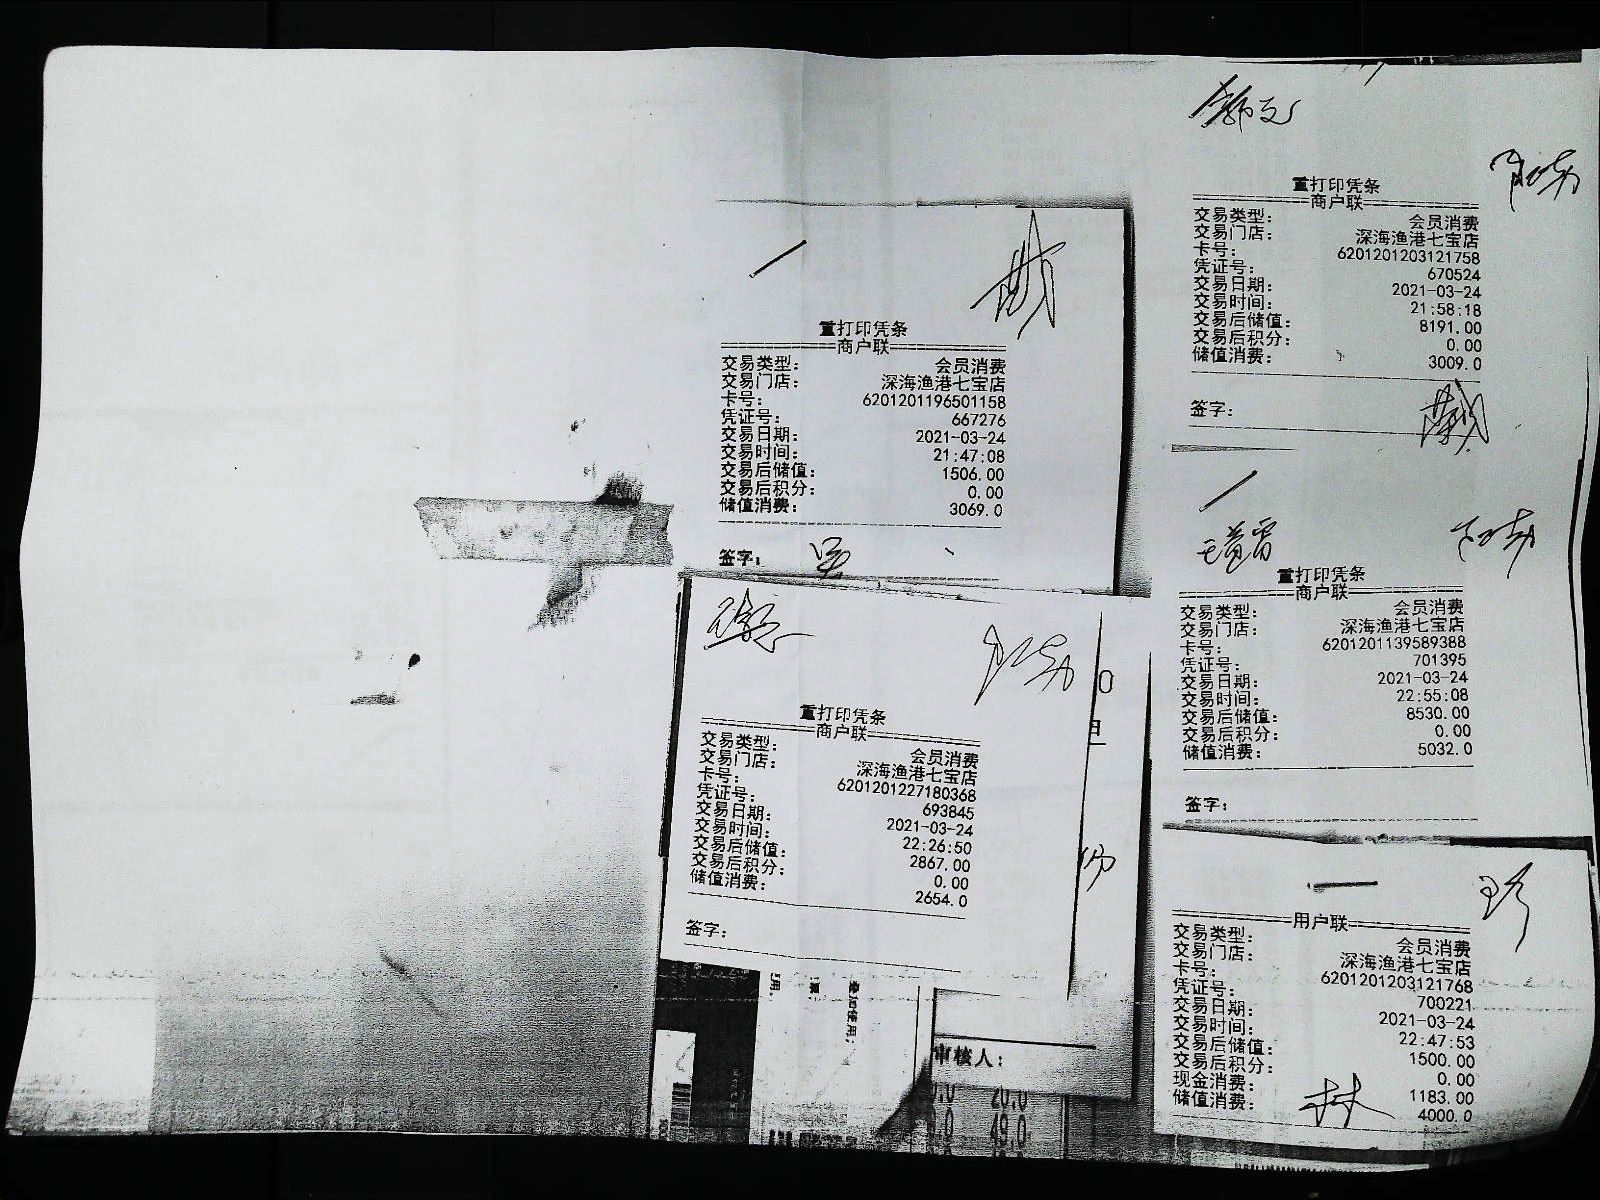 重打印凭条
商户联
交易类型: 会员消费
交易门店: 深海渔港七宝店
卡号: 6201201196501158
凭证号: 667276
交易日期: 2021-03-24
交易时间: 21:47:08
交易后储值: 1506.00
交易后积分: 0.00
储值消费: 3069.0
签字:
重打印凭条
商户联
交易类型: 会员消费
交易门店: 深海渔港七宝店
卡号: 6201201227180368
凭证号: 693845
交易日期: 2021-03-24
交易时间: 22:26:50
交易后储值: 2867.00
交易后积分: 0.00
储值消费: 2654.0
签字:
审核人:
20.0
49.0
重打印凭条
商户联
交易类型: 会员消费
交易门店: 深海渔港七宝店
卡号: 6201201203121758
凭证号: 670524
交易日期: 2021-03-24
交易时间: 21:58:18
交易后储值: 8191.00
交易后积分: 0.00
储值消费: 3009.0
签字:
重打印凭条
商户联
交易类型: 会员消费
交易门店: 深海渔港七宝店
卡号: 6201201139589388
凭证号: 701395
交易日期: 2021-03-24
交易时间: 22:55:08
交易后储值: 8530.00
交易后积分: 0.00
储值消费: 5032.0
签字:
用户联
交易类型: 会员消费
交易门店: 深海渔港七宝店
卡号: 6201201203121768
凭证号: 700221
交易日期: 2021-03-24
交易时间: 22:47:53
交易后储值: 1500.00
交易后积分: 0.00
现金消费: 1183.00
储值消费: 4000.0